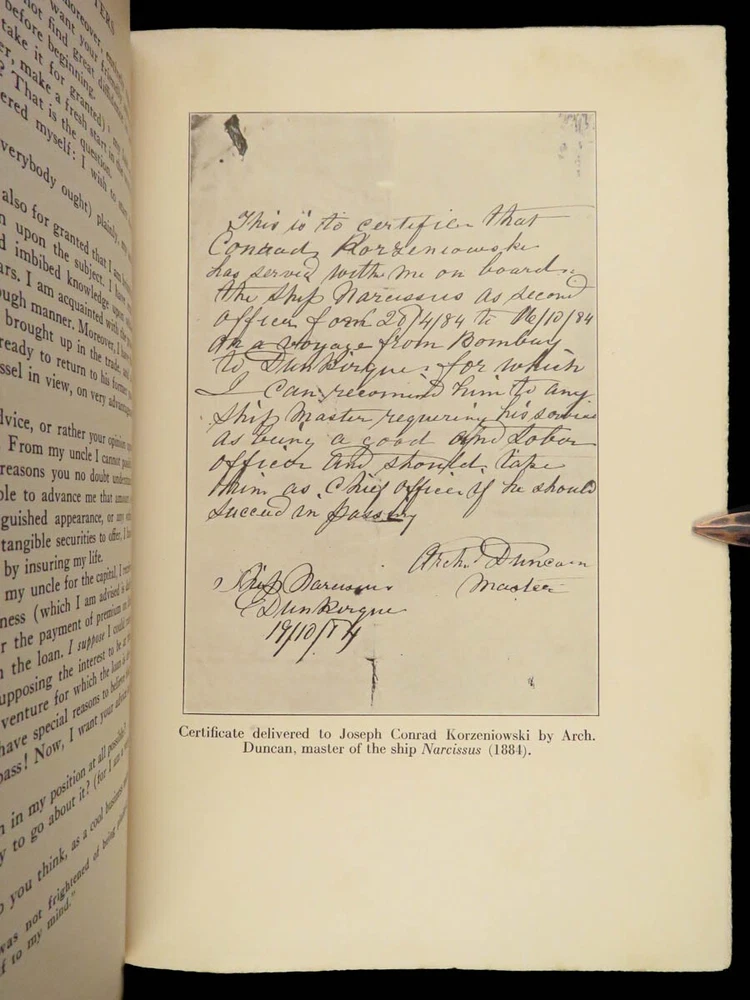 TERS
moreover,
want your
not find great
before beginning.
take it for granted)
r, make a fresh start in the
? That is the question.
ered myself: I wish to
verybody ought) plainly,
also for granted that I am
n upon the subject. I have
d imbibed knowledge upon
ars. I am acquainted with
ough manner. Moreover, I
brought up in the trade,
ready to return to his former
ssel in view, on very
dvice, or rather your opinion
. From my uncle I cannot
reasons you no doubt
ble to advance me that amount
guished appearance, or any
tangible securities to offer, I
by insuring my life.
my uncle for the capital, I
ness (which I am advised is
r the payment of premium on
n the loan. I suppose I could
upposing the interest to be
venture for which the loan is
have special reasons to believe
pass! Now, I want your advice
n in my position at all possible?
y to go about it? (for I am
o you think, as a cool business
was not frightened of being
f to my mind."
This is to certifie that
Conrad Korzeniowski
has served with me on board
the Ship Narcissus as second
Officer from 28/4/84 to 16/10/84
on a voyage from Bombay
to Dunkirque; for which
I can recomind him to any
Ship Master requering his service
as being a good and Sober
officer and should take
him as Chief Officer if he should
succed in passing
Archd Duncan
Master
Ship Narcissus
Dunkirque
19/10/84
Certificate delivered to Joseph Conrad Korzeniowski by Arch.
Duncan, master of the ship Narcissus (1884).